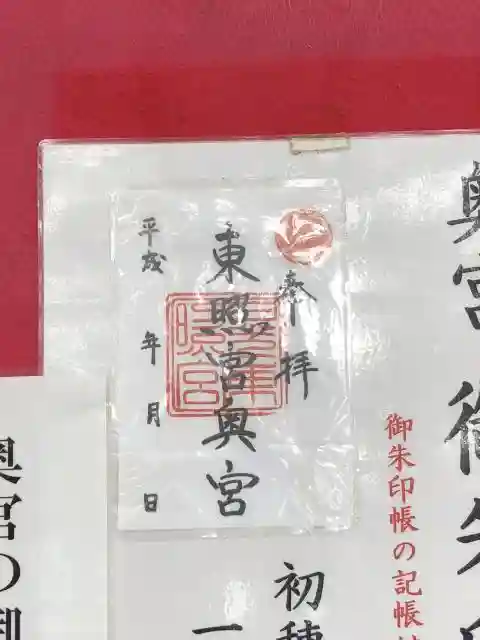 奥宮 御朱印
御朱印帳の記帳
奉拝
東照宮奥宮
平成 年 月 日
初穂
一
奥宮の御